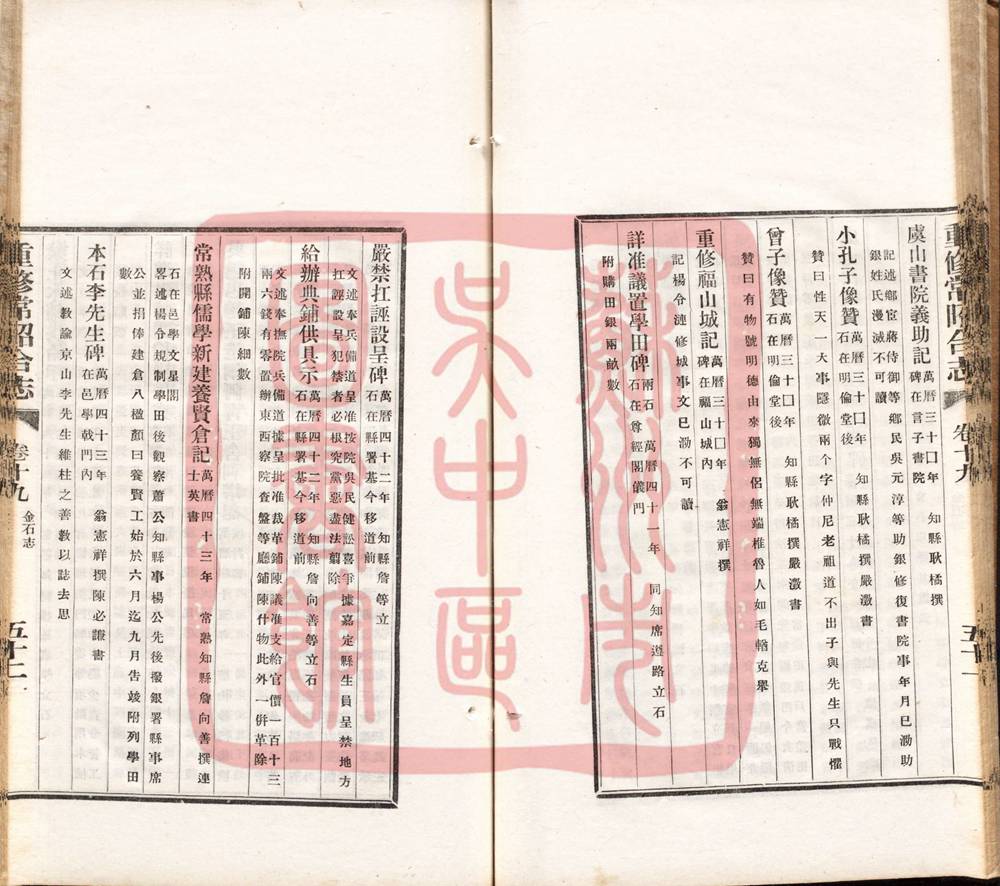 虞山書院義助記萬曆三十囗年　知縣耿橘撰
碑在言子書院
記述鄉宦蔣侍御等鄉民吳元淳等助銀修復書院事年月已泐助
銀姓氏漫滅不可讀
小孔子像贊萬曆三十囗年　知縣耿橘撰嚴澂書
石在明倫堂後
贊曰性天一大事隱微兩个字仲尼老祖道不出子與先生只戰懼
曾子像贊萬曆三十囗年　知縣耿橘撰嚴澂書
石在明倫堂後
贊曰有物號明德由來獨無侶無端椎魯人如毛輶克舉
重修福山城記萬曆三十囗年　翁憲祥撰
碑在福山城內
記楊令漣修城事文已泐不可讀
詳准議置學田碑兩石　萬曆四十一年　同知席遵路立石
石在尊經閣儀門
附購田銀兩畝數
重修常昭合志　卷十九　五十一
嚴禁扛誣設呈碑萬曆四十二年　知縣詹等立
石在縣署基今移道前
文述奉兵備道呈准按院吳民健訟喜爭據嘉定縣生員呈禁地方
扛誣設呈犯禁者必根究黨惡盡法翦除
給辦典鋪供具示萬曆四十二年　知縣詹向善等立石
石在縣署基今移道前
文述奉撫院兵備道據呈批准裁革鋪陳議准支給官價一百十三
兩六錢有零置辦東西察院查盤等廳鋪陳什物此外一併革除
附開鋪陳細數
常熟縣儒學新建養賢倉記萬曆四十三年　常熟知縣詹向善撰連
士英書
石在邑學文星閣
畧述楊令規制學田後觀察蕭公知縣事楊公先後撥銀署縣事席
公並捐俸建倉八楹顏曰養賢工始於六月迄九月告竣附列學田
數
本石李先生碑萬曆四十三年　翁憲祥撰陳必謙書
在邑學戟門內
文述教諭京山李先生維柱之善教以誌去思
重修常昭合志　卷十九　金石志　五十二